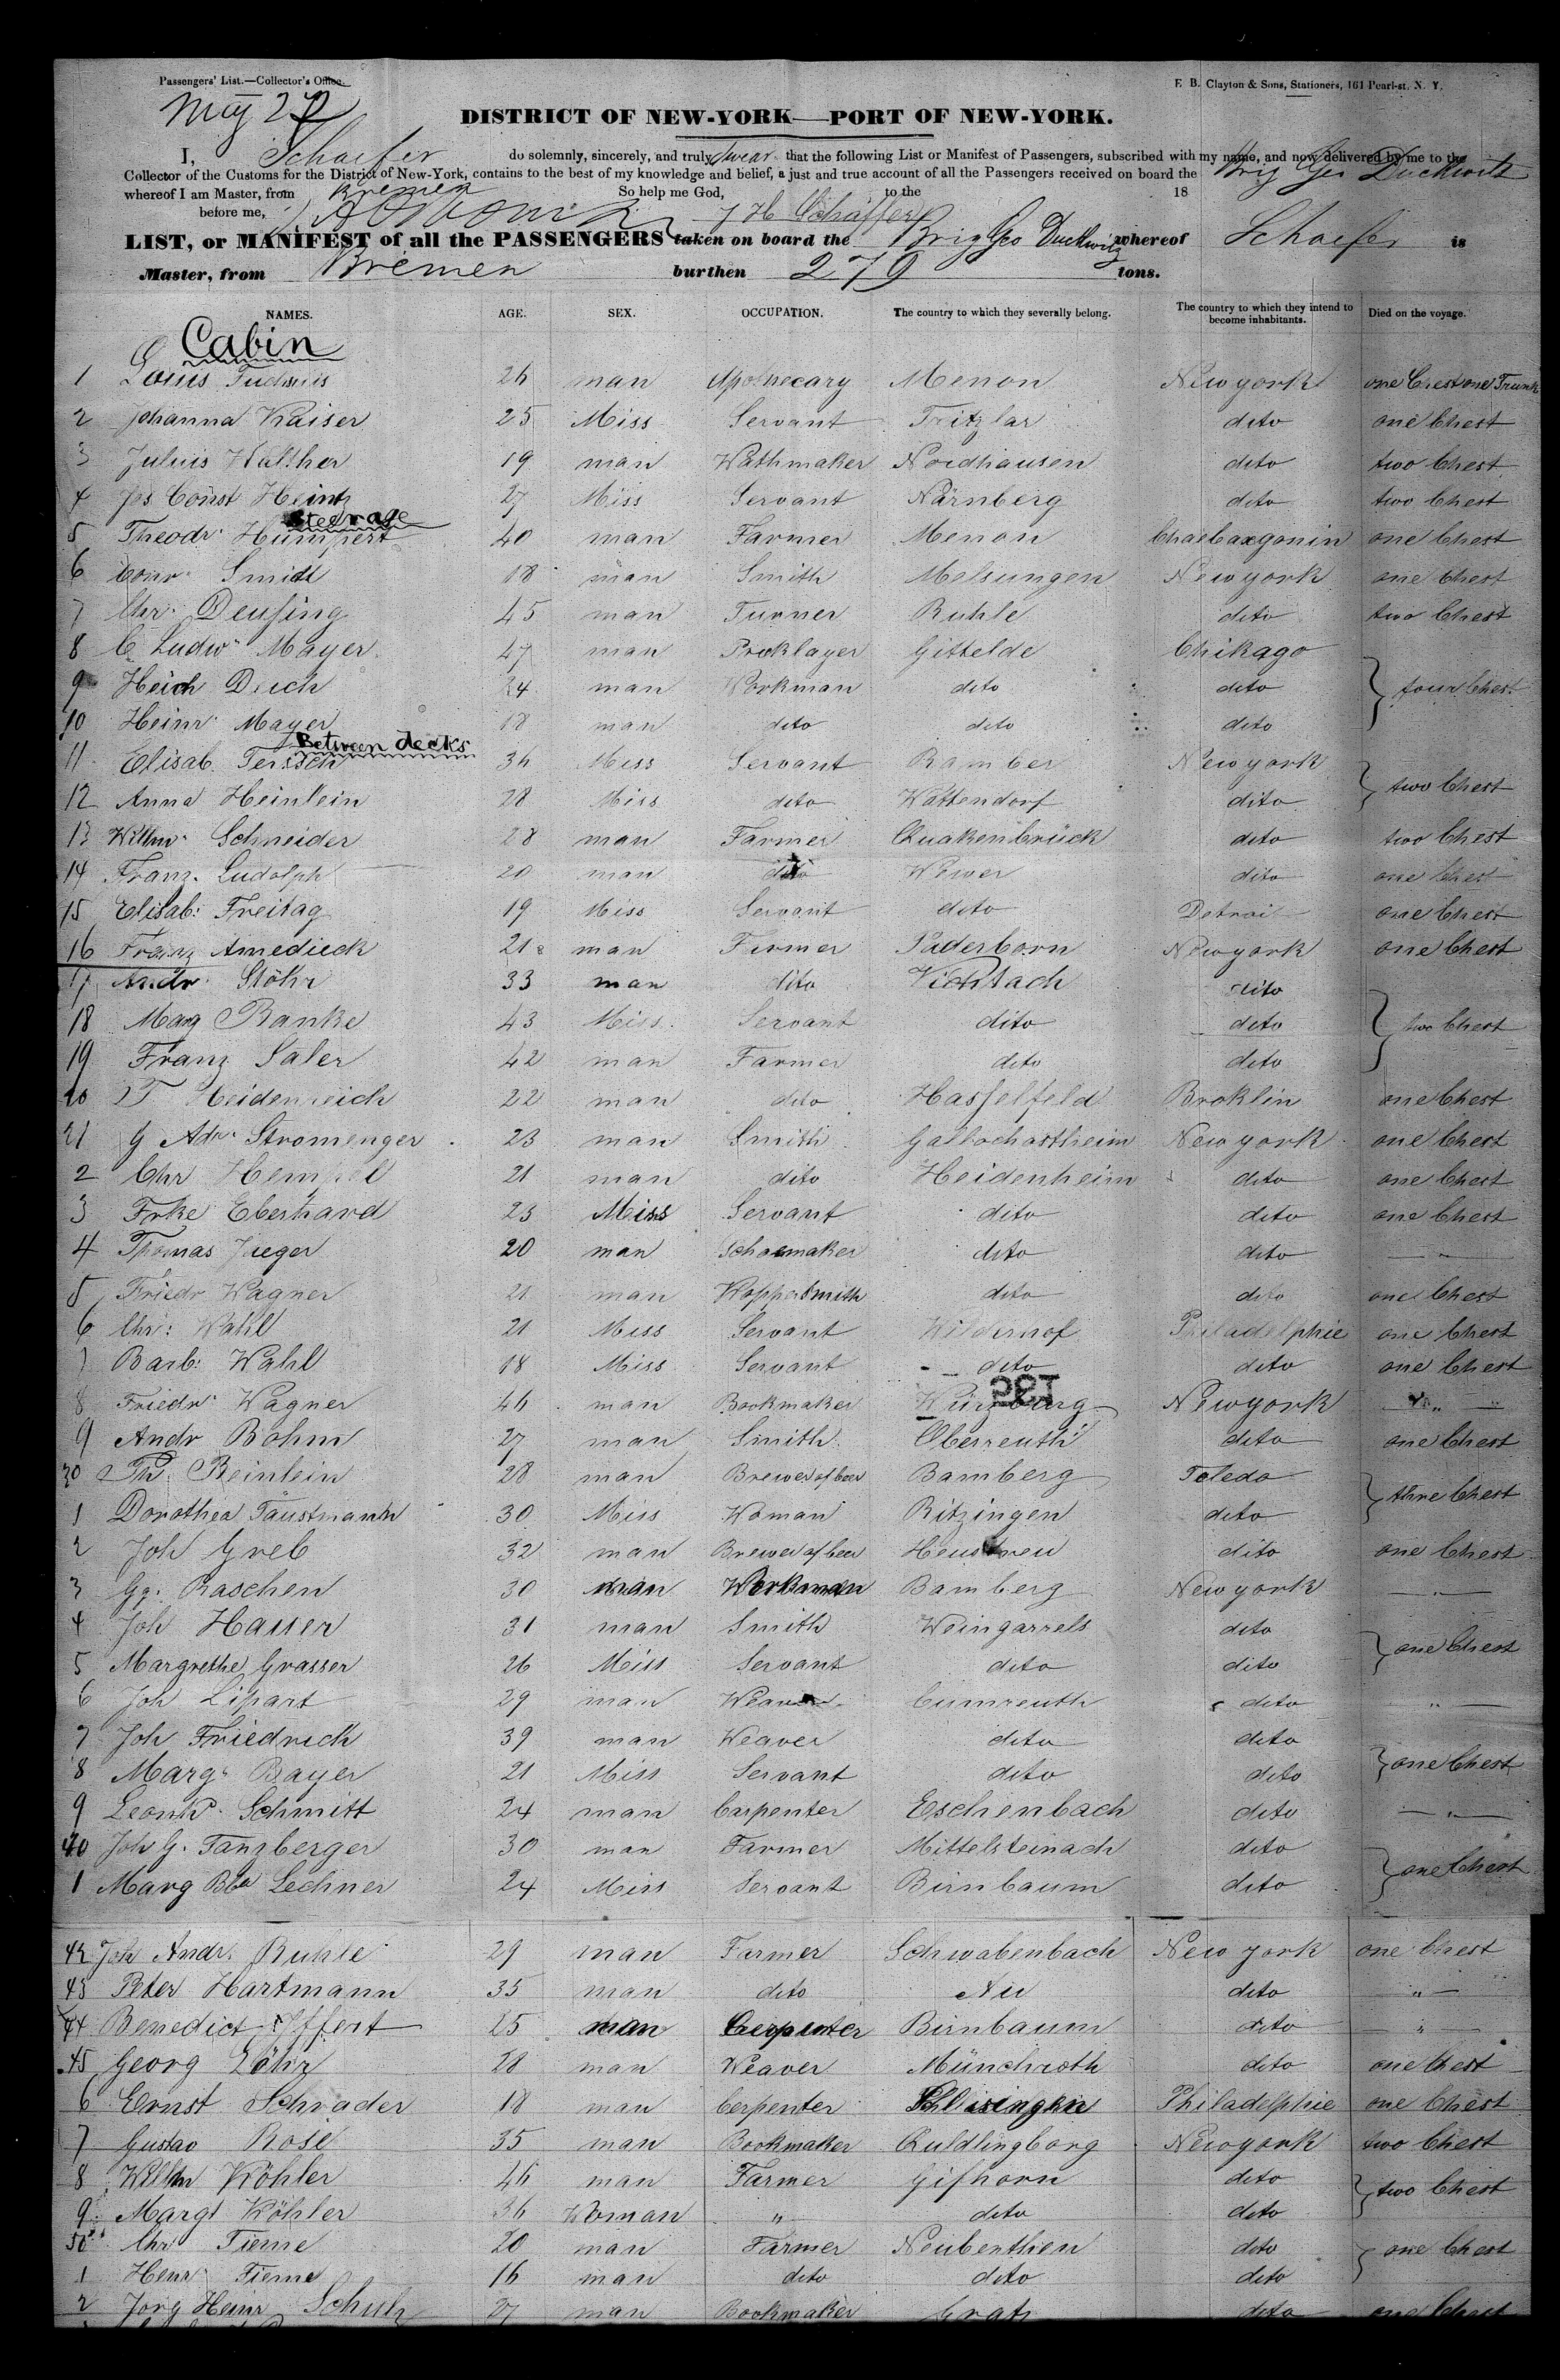 Passengers' List.—Collector's Office.
F. B. Clayton & Sons, Stationers, 161 Pearl-st. N. Y.
May 27
DISTRICT OF NEW-YORK—PORT OF NEW-YORK.
I, Schaefer do solemnly, sincerely, and truly swear that the following List or Manifest of Passengers, subscribed with my name, and now delivered by me to the
Collector of the Customs for the District of New-York, contains to the best of my knowledge and belief, a just and true account of all the Passengers received on board the Brig Geo Duckwitz
whereof I am Master, from Bremen So help me God, to the 18
before me, J H Schäffer
LIST, or MANIFEST of all the PASSENGERS taken on board the Brig Geo Duckwitz whereof Schaefer is
Master, from Bremen burthen 279 tons.
NAMES. AGE. SEX. OCCUPATION. The country to which they severally belong. The country to which they intend to become inhabitants. Died on the voyage.
Cabin
1 Louis 26 man Apothecary Menon New york one Chest one Trunk
2 Johanna Kaiser 25 Miss Servant Fritzlar dito one Chest
3 Julius Walther 19 man Wathmaker Nordhausen dito two Chest
4 Jos Const Heintz 27 Miss Servant Nürnberg dito two Chest
Steerage
5 Theodr Humpert 40 man Farmer Menon one Chest
6 Conr Smidt 18 man Smith Melsungen New york one Chest
7 Chr Deusing 45 man Turner Ruhle dito two Chest
8 C Ludw Mayer 47 man Gittelde Chikago
9 Heich Deich 24 man Workman dito dito four Chest
10 Heinr Mayer 18 man dito dito dito
Between decks
11 Elisab. 36 Miss Servant Bamber New york
12 Anna Heinlein 28 Miss dito Wattendorf dito two Chest
13 Willm Schneider 28 man Farmer Quakenbrück dito two Chest
14 Franz Ludolph 20 man dito Wewer dito one Chest
15 Elisab: Freitag 19 Miss Servant dito Detroit one Chest
16 Franz Amedieck 21 man Firmer Paderborn New york one Chest
17 Andr Stöhr 33 man dito dito
18 Marg Banke 43 Miss Servant dito dito two Chest
19 Franz Saler 42 man Farmer dito dito
20 Heidenreich 22 man dito Hasselfeld Broklin one Chest
21 G Adr Stromenger 23 man Smith Gallochostheim New york one Chest
2 Chr Hempel 21 man dito Heidenheim dito one Chest
3 Frke Eberhard 23 Miss Servant dito dito one Chest
4 Thomas Jieger 20 man Schoemaker dito dito "
5 Friedr Wagner 21 man Koppersmith dito dito one Chest
6 Chr: Wahl 21 Miss Servant Philadelphie one Chest
7 Barb: Wahl 18 Miss Servant dito dito one Chest
195
8 Friedr Wagner 46 man Bookmaker Würzburg New york "
9 Andr Bohm 27 man Smith Oberreuth dito one Chest
30 Th: Beinlein 28 man Brewer of beer Bamberg Toledo
1 Dorothea Faustmann 30 Miss Woman Ritzingen dito three Chest
2 Joh Greb 32 man Brewer of beer Heustreu dito one Chest
3 Gg: Raschen 30 man Workman Bamberg New york "
4 Joh Hauser 31 man Smith Weingarrels dito
5 Margrethe Grasser 26 Miss Servant dito dito one Chest
6 Joh Lipart 29 man Weaver Cumreuth dito "
7 Joh Friedrich 39 man Weaver dito dito
8 Marg Bayer 21 Miss Servant dito dito one Chest
9 Leonh Schmitt 24 man Carpenter Eschenbach dito "
40 Joh G. Tanzberger 30 man Farmer Mittelsteinach dito
1 Marg Bba Lechner 24 Miss Servant Birnbaum dito one Chest
42 Joh Andr Ruhle 29 man Farmer Schwabenbach New york one Chest
43 Peter Hartmann 35 man dito Au dito "
44 Benedict Iffert 25 man Cerpenter Birnbaum dito "
45 Georg Löhr 28 man Weaver Münchroth dito one Chest
6 Ernst Schrader 18 man Cerpenter Philadelphie one Chest
7 Gustav Rose 35 man Bookmaker Quldlingborg New york two Chest
8 Willm Köhler 46 man Farmer Gifhorn dito
9 Margt Köhler 36 Woman " dito dito two Chest
50 Chr Tieme 20 man Farmer Neubenthien dito
1 Henr Tieme 16 man dito dito dito one Chest
2 Jorg Heinr Schulz 27 man Bookmaker Gratz dito one Chest